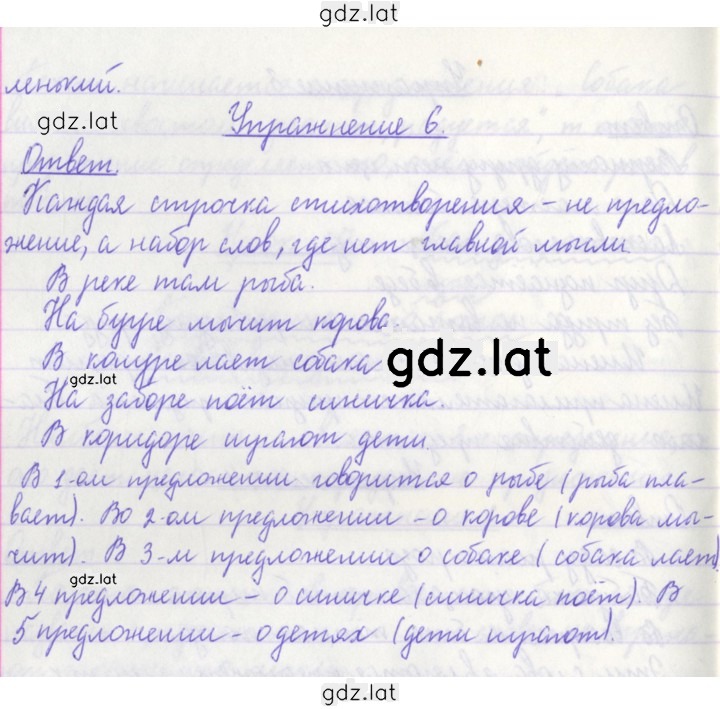 gdz.lat
ленький.
gdz.lat
Упражнение 6.
Ответ.
Каждая строчка стихотворения – не предло-
жение, а набор слов, где нет главной мысли.
В реке там рыба.
На бугре мычит корова.
В конуре лает собака
gdz.lat
gdz.lat
На заборе поёт синичка.
В коридоре играют дети.
В 1-ом предложении говорится о рыбе (рыба пла-
вает). Во 2-ом предложении – о корове (корова мы-
чит). В 3-м предложении о собаке (собака лает)
В 4 предложении – о синичке (синичка поёт). В
5 предложении – о детях (дети играют).
gdz.lat